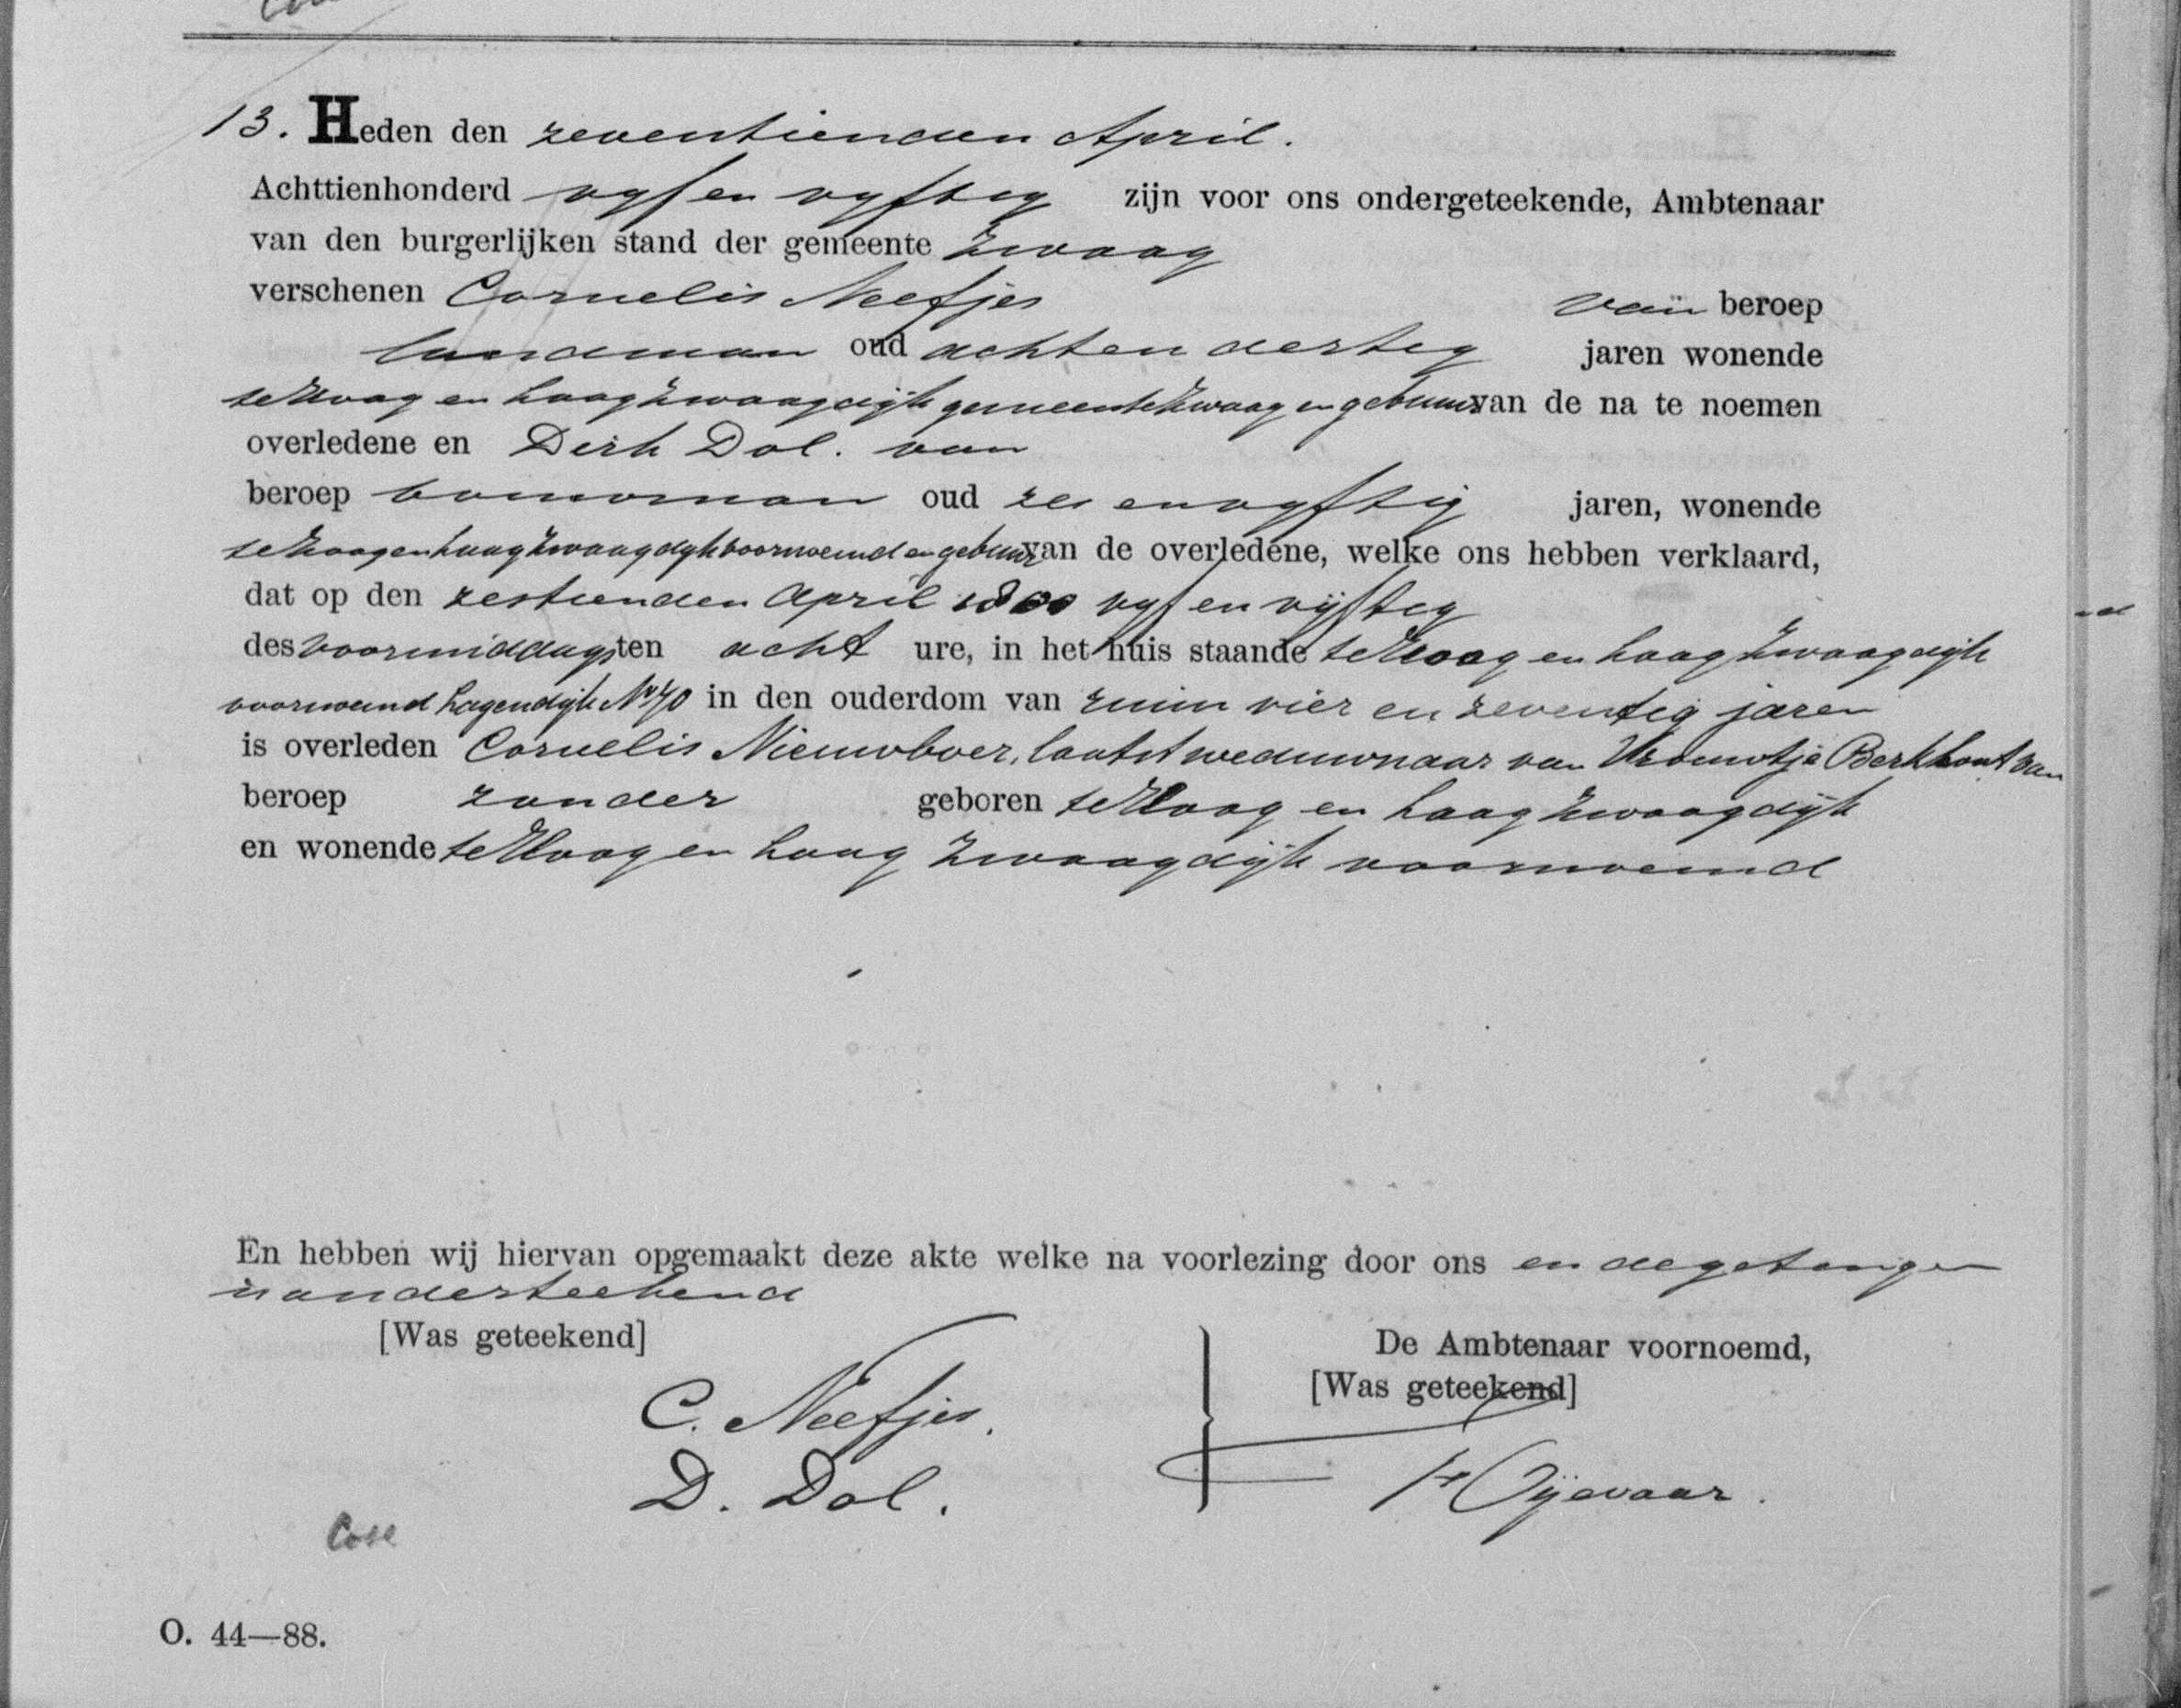 13. Heden den zeventienden April.
Achttienhonderd vyf en vyftig zijn voor ons ondergeteekende, Ambtenaar
van den burgerlijken stand der gemeente Zwaag
verschenen Cornelis Neefjes van beroep
landman oud acht en dertig jaren wonende
te Hoog en Laag Zwaagdijk gemeente Zwaag en gebuur van de na te noemen
overledene en Dirk Dol. van
beroep bouwman oud zes en vyftig jaren, wonende
te Hoog en Laag Zwaagdyk voornoemd en gebuur van de overledene, welke ons hebben verklaard,
dat op den zestienden April 1800 vyf en vijftig
des voormiddags ten acht ure, in het huis staande te Hoog en Laag Zwaagdijk
voornoemd Lagendijk No 70 in den ouderdom van ruim vier en zeventig jaren
is overleden Cornelis Nieuwboer, laatst weduwnaar van Vrouwtje Berkhout van
beroep zonder geboren te Hoog en Laag Zwaagdijk
en wonende te Hoog en Laag Zwaagdijk voornoemd
En hebben wij hiervan opgemaakt deze akte welke na voorlezing door ons en de getuigen
is onderteekend
[Was geteekend]
De Ambtenaar voornoemd,
[Was geteekend]
C. Neefjes.
D. Dol.
Oijevaar.
O. 44—88.